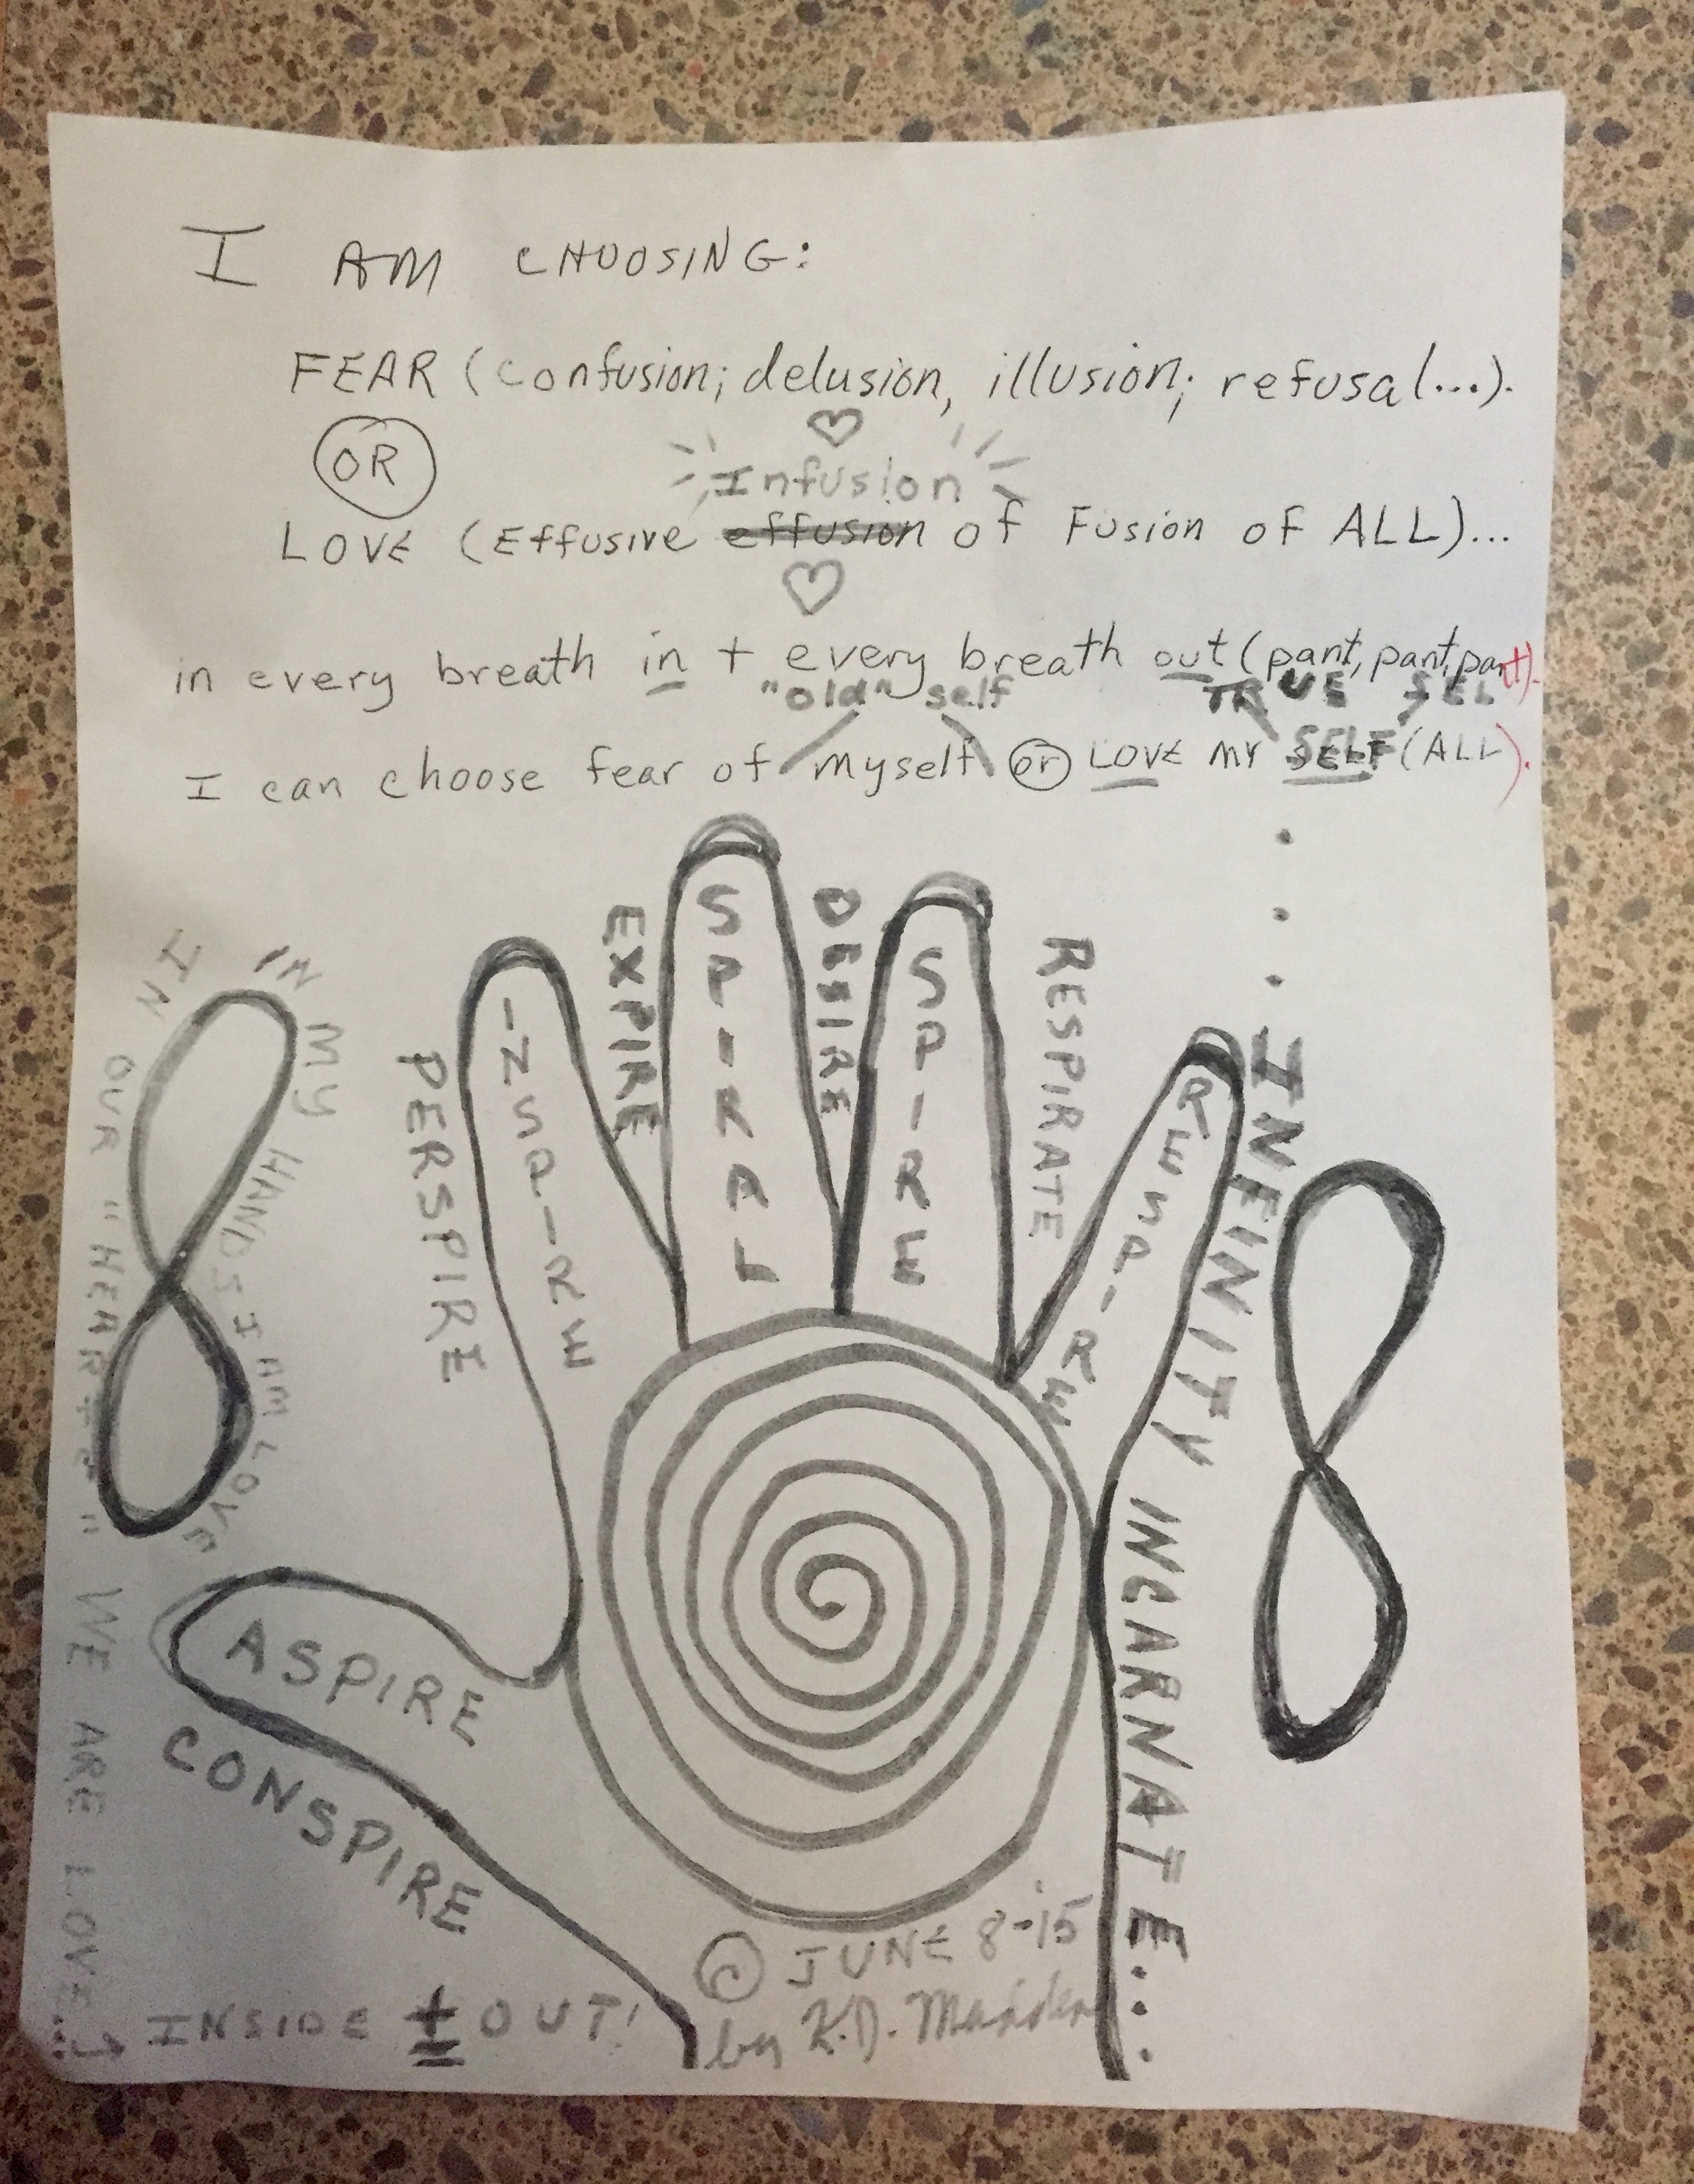 I AM CHOOSING:
FEAR (confusion; delusion, illusion; refusal...).
OR
Infusion
LOVE (Effusive effusion of Fusion of ALL)...
in every breath in + every breath out (pant, pant, pant).
"old" self TRUE SEL
I can choose fear of myself or LOVE MY SELF (ALL).
IN MY HANDS I AM LOVE
IN OUR "HEART-E" WE ARE LOVE...
PERSPIRE
INSPIRE
EXPIRE
SPIRAL
DESIRE
SPIRE
RESPIRATE
RESPIRE
...INFINITY INCARNATE...
ASPIRE
CONSPIRE
INSIDE + OUT!
© JUNE 8-15
by K.D. Madden